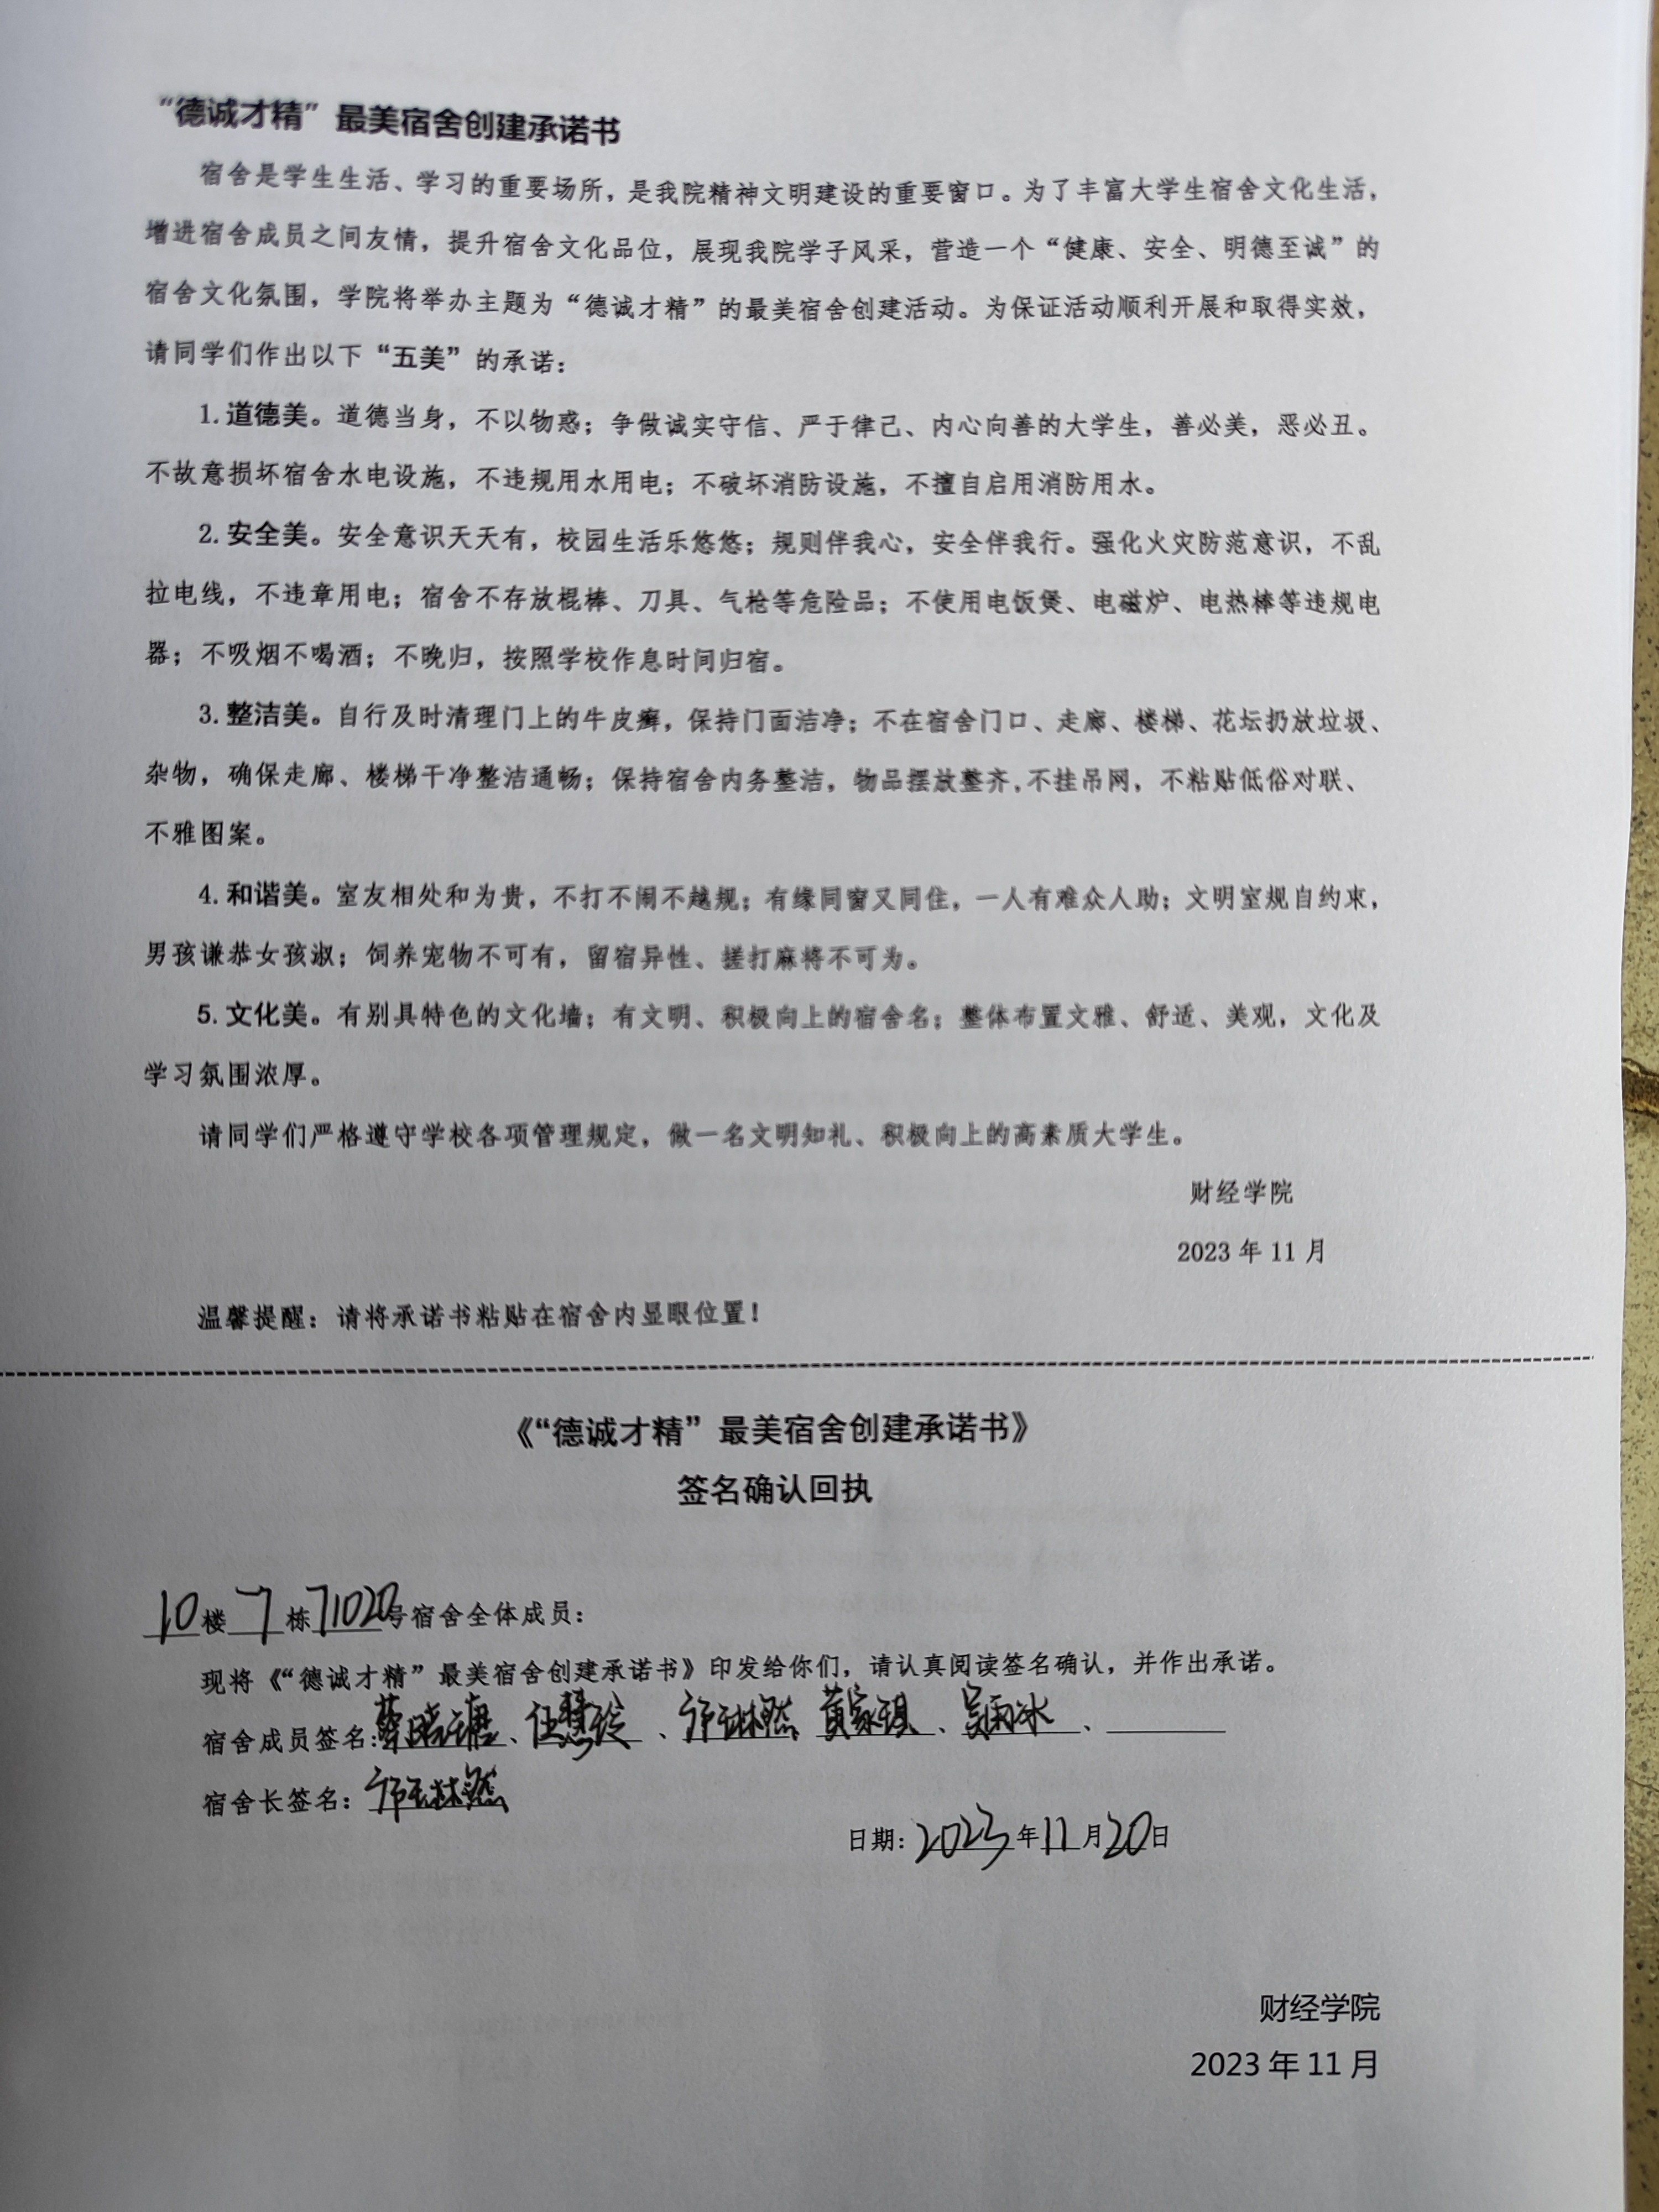 “德诚才精”最美宿舍创建承诺书
宿舍是学生生活、学习的重要场所，是我院精神文明建设的重要窗口。为了丰富大学生宿舍文化生活，
增进宿舍成员之间友情，提升宿舍文化品位，展现我院学子风采，营造一个“健康、安全、明德至诚”的
宿舍文化氛围，学院将举办主题为“德诚才精”的最美宿舍创建活动。为保证活动顺利开展和取得实效，
请同学们作出以下“五美”的承诺：
1.道德美。道德当身，不以物惑；争做诚实守信、严于律己、内心向善的大学生，善必美，恶必丑。
不故意损坏宿舍水电设施，不违规用水用电；不破坏消防设施，不擅自启用消防用水。
2.安全美。安全意识天天有，校园生活乐悠悠；规则伴我心，安全伴我行。强化火灾防范意识，不乱
拉电线，不违章用电；宿舍不存放棍棒、刀具、气枪等危险品；不使用电饭煲、电磁炉、电热棒等违规电
器；不吸烟不喝酒；不晚归，按照学校作息时间归宿。
3.整洁美。自行及时清理门上的牛皮癣，保持门面洁净；不在宿舍门口、走廊、楼梯、花坛扔放垃圾、
杂物，确保走廊、楼梯干净整洁通畅；保持宿舍内务整洁，物品摆放整齐,不挂吊网，不粘贴低俗对联、
不雅图案。
4.和谐美。室友相处和为贵，不打不闹不越规；有缘同窗又同住，一人有难众人助；文明室规自约束，
男孩谦恭女孩淑；饲养宠物不可有，留宿异性、搓打麻将不可为。
5.文化美。有别具特色的文化墙；有文明、积极向上的宿舍名；整体布置文雅、舒适、美观，文化及
学习氛围浓厚。
请同学们严格遵守学校各项管理规定，做一名文明知礼、积极向上的高素质大学生。
财经学院
2023 年 11 月
温馨提醒：请将承诺书粘贴在宿舍内显眼位置！
《“德诚才精”最美宿舍创建承诺书》
签名确认回执
10楼 7 栋71020号宿舍全体成员：
现将《“德诚才精”最美宿舍创建承诺书》印发给你们，请认真阅读签名确认，并作出承诺。
宿舍成员签名：、任慧玲、许琳然 黄家琪、吴雨冰、
宿舍长签名：许琳然
日期：2023年11月20日
财经学院
2023 年 11 月